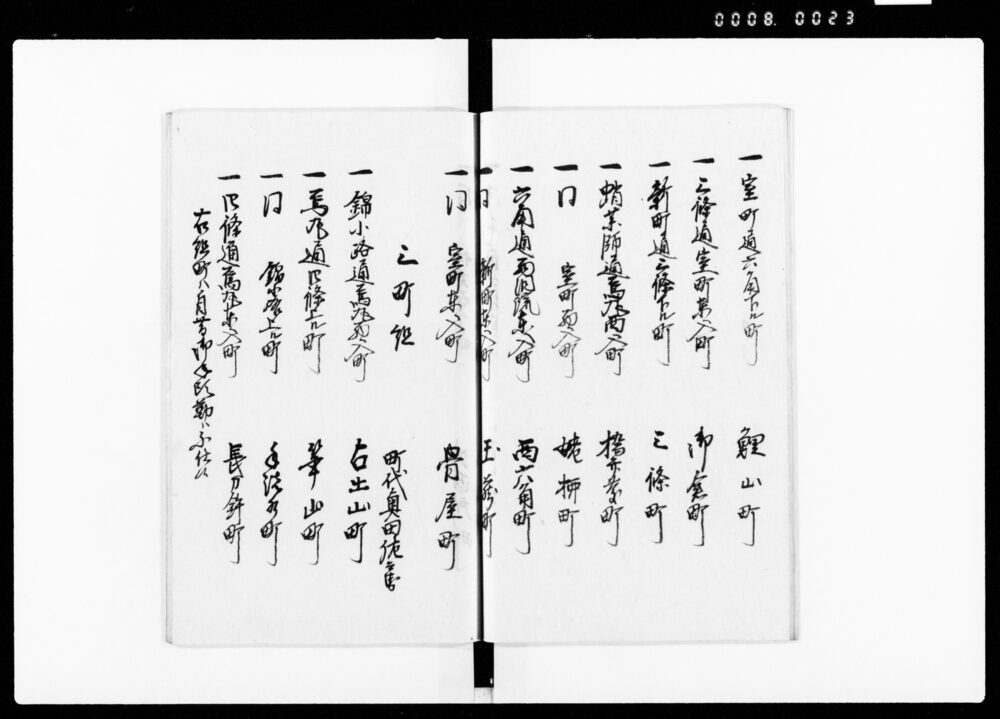 0008. 0023
一 室町通六角下ル町 鯉山町
一 三條通室町東へ入町 御倉町
一 新町通三條下ル町 三條町
一 蛸薬師通烏丸西へ入町 橋弁慶町
一 同 室町西へ入町 姥柳町
一 六角通西洞院東へ入町 西六角町
一 同 新町東へ入町 玉蔵町
一 同 室町東へ入町 骨屋町
三町組
町代奥田佐兵衛
一 錦小路通烏丸西へ入町 占出山町
一 烏丸通四條上ル町 笋山町
一 同 錦小路上ル町 手洗水町
一 四條通烏丸東へ入町 長刀鉾町
右組町八月番御年頭勤ハ不仕候